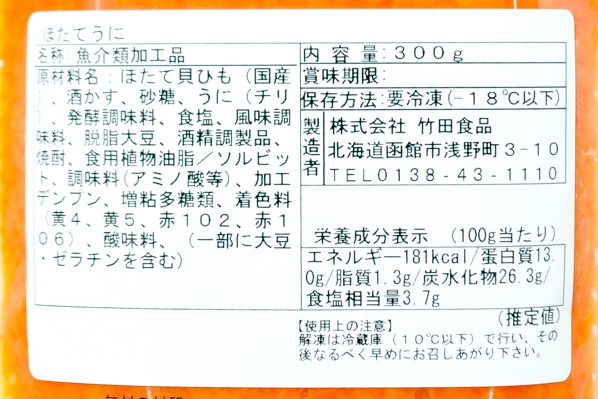 ほたてうに
名称:魚介類加工品
原材料名:ほたて貝ひも(国産
)、酒かす、砂糖、うに(チリ
)、発酵調味料、食塩、風味調
味料、脱脂大豆、酒精調製品、
焼酎、食用植物油脂/ソルビッ
ト、調味料(アミノ酸等)、加工
デンプン、増粘多糖類、着色料
(黄4、黄5、赤102、赤1
06)、酸味料、(一部に大豆
・ゼラチンを含む)
内容量:300g
賞味期限:
保存方法:要冷凍(-18℃以下)
製造者
株式会社 竹田食品
北海道函館市浅野町3-10
TEL0138-43-1110
栄養成分表示 (100g当たり)
エネルギー181kcal/蛋白質13.
0g/脂質1.3g/炭水化物26.3g/
食塩相当量3.7g
(推定値)
【使用上の注意】
解凍は冷蔵庫(10℃以下)で行い、その
後なるべく早めにお召しあがり下さい。